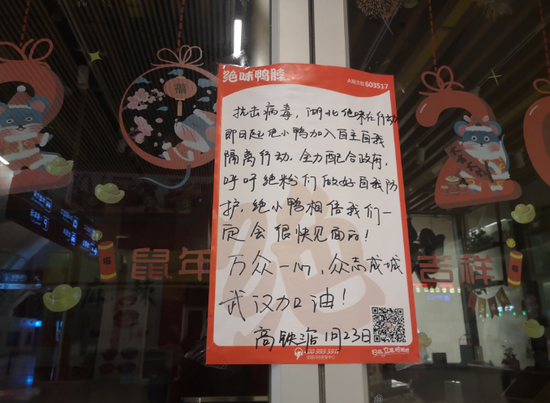 绝味鸭脖
A股主板 603517
抗击病毒，湖北绝味在行动
即日起绝小鸭加入自主自我
隔离行动，全力配合政府，
呼吁绝粉们做好自我防
护，绝小鸭相信我们一
定会很快见面的！
万众一心，众志成城
武汉加油！
高铁馆 1月23日
鼠年
吉祥
福
2
0